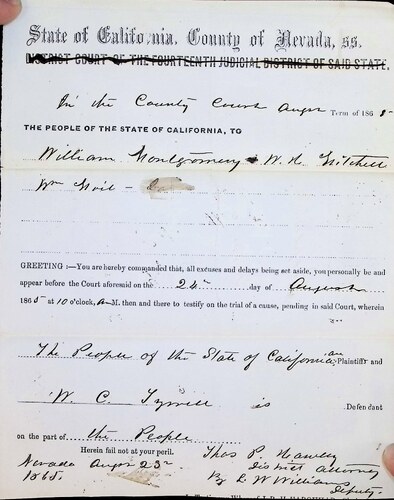 State of California, County of Nevada, ss.
DISTRICT COURT OF THE FOURTEENTH JUDICIAL DISTRICT OF SAID STATE.
In the County Court Augst Term of 1865
THE PEOPLE OF THE STATE OF CALIFORNIA, TO
William Montgomery & W. H. Mitchell
Wm
GREETING:—You are hereby commanded that, all excuses and delays being set aside, you personally be and
appear before the Court aforesaid on the 24th day of August
1865 at 10 o'clock, A M. then and there to testify on the trial of a cause, pending in said Court, wherein
The People of the State of California are Plaintiff and
W. C. Tyrrell is Defendant
on the part of the People
Herein fail not at your peril.
Nevada Augst 23rd
1865.
Thos P. Hawley
District Attorney
By L W Williams
Deputy.